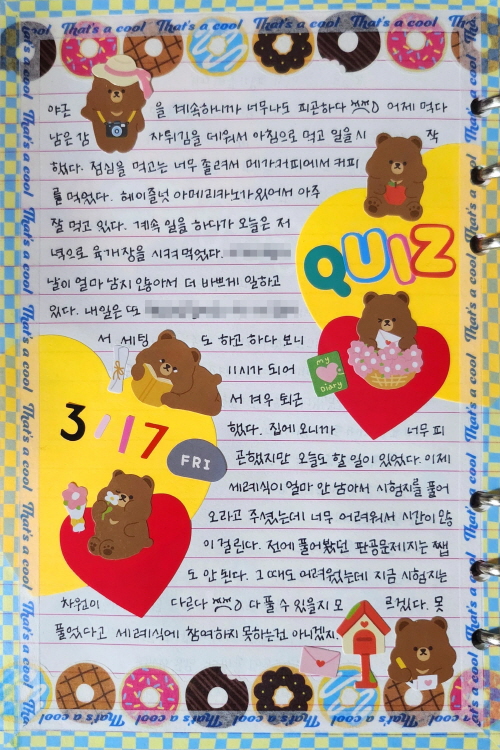 That's a cool That's a cool That's a cool That's a cool
야근을 계속하니까 너무나도 피곤하다 어제 먹다
남은 감자튀김을 데워서 아침으로 먹고 일을 시작
했다. 점심을 먹고는 너무 졸려서 메가커피에서 커피
를 먹었다. 헤이즐넛 아메리카노가 있어서 아주
잘 먹고 있다. 계속 일을 하다가 오늘은 저
녁으로 육개장을 시켜 먹었다.
QUIZ
날이 얼마 남지 않아서 더 바쁘게 일하고
있다. 내일은 또
서 세팅도 하고 하다 보니
11시가 되어
My Diary
서 겨우 퇴근
3/17
FRI
했다. 집에 오니까 너무 피
곤했지만 오늘도 할 일이 있었다. 이제
세례식이 얼마 안 남아서 시험지를 풀어
오라고 주셨는데 너무 어려워서 시간이 많
이 걸린다. 전에 풀어봤던 판공문제지는 쨉
도 안 된다. 그때도 어려웠는데 지금 시험지는
차원이 다르다 다 풀 수 있을지 모르겠다. 못
풀었다고 세례식에 참여하지 못하는건 아니겠지.
That's a cool That's a cool That's a cool That's a cool